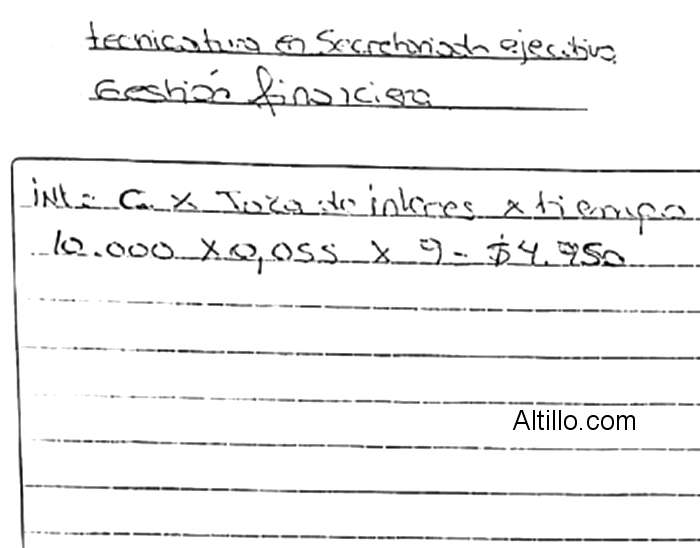 tecnicatura en Secretariado ejecutivo
Gestión financiera
iNt = C. x Taza de interes x tiempo
10.000 x 0,055 x 9 = $4.950
Altillo.com